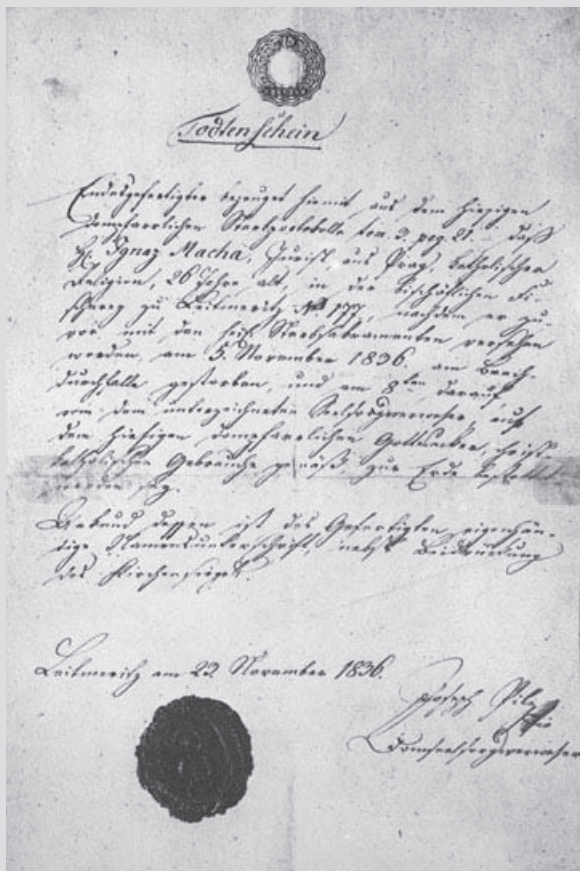 Todtenschein
Endesgefertigter bezeuget hiemit aus dem hiesigen
dompfarrlichen Sterbprotokolle tom. 3. pag. 21. daß
H. Ignaz Macha, Jurist aus Prag, katholischer
Religion, 26 Jahre alt, in der bischöflichen Fi-
scherey zu Leitmeritz No 177, nachdem er zu-
vor mit den heil. Sterbsakramenten versehen
worden, am 5. November 1836. am Brech-
durchfalle gestorben, und am 8ten darauf
von dem unterzeichneten Seelsorgsverweser auf
dem hiesigen dompfarrlichen Gottesacker,
katholischen Gebrauche gemäß zur Erde bestattet
worden sey.
Urkund dessen ist des Gefertigten eigenhän-
dige Namensunterschrift, nebst Beidrückung
des Kirchensiegels.
Leitmeritz am 23. November 1836.
Joseph Pilz
Domseelsorgsverweser